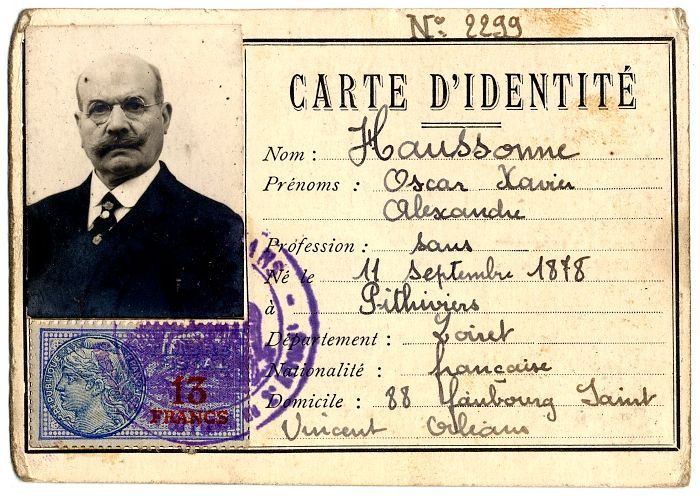 N° 2299
CARTE D'IDENTITÉ
Nom : Haussonne
Prénoms : Oscar Xavier
Alexandre
Profession : sans
Né le 11 septembre 1878
à Pithiviers
Département : Loiret
Nationalité : française
Domicile : 88 faubourg Saint
Vincent Orléans
13
FRANCS